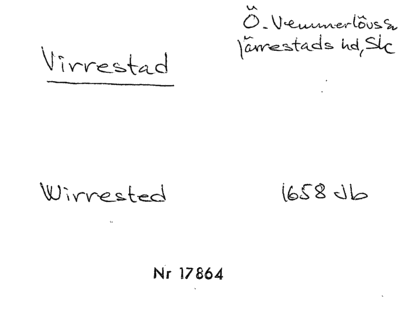 Ö. Vemmerlövs sn
Järrestads hd, Sk
Virrestad
Wirrested 1658 Jb
Nr 17864